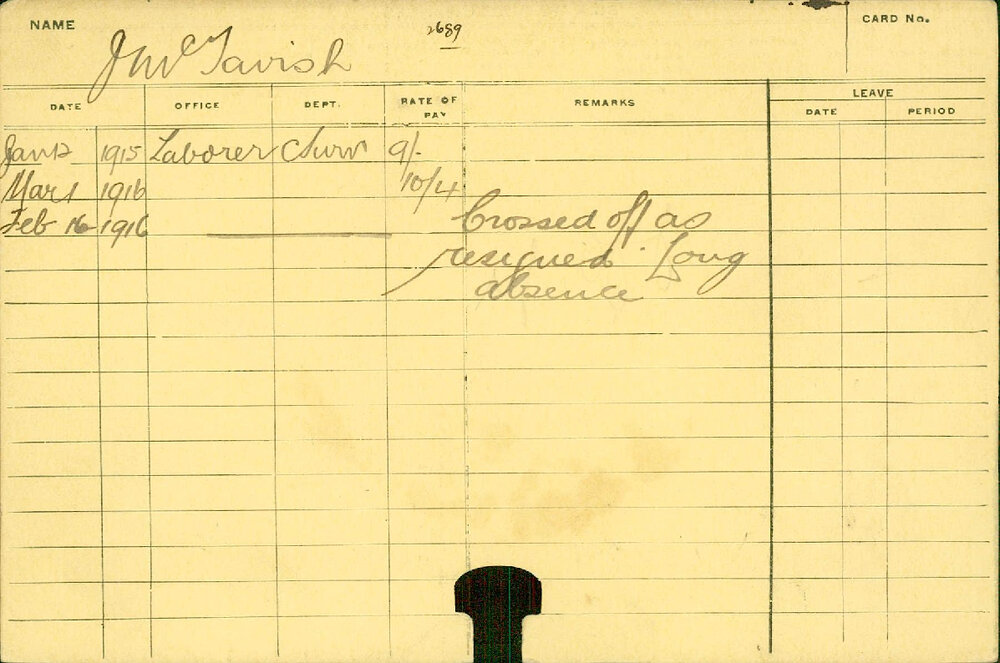 NAME
2689
CARD No.
J McTavish
DATE OFFICE DEPT. RATE OF PAY REMARKS LEAVE
DATE PERIOD
Jan 12 1915 Laborer Surv 9/-
Mar 1 1916 10/4
Feb 16 1916 Crossed off as
resigned. Long
absence